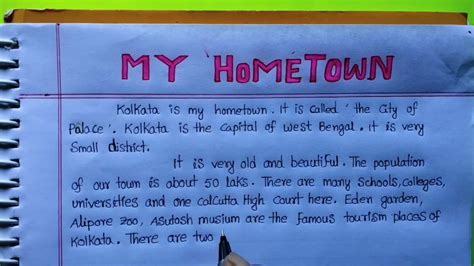 MY HOMETOWN
Kolkata is my hometown. It is called 'the City of
Palace'. Kolkata is the capital of West Bengal. It is very
Small district.
It is very old and beautiful. The population
of our town is about 50 laks. There are many schools, colleges,
universities and one calcutta High Court here. Eden garden,
Alipore zoo, Asutosh musium are the famous tourism places of
Kolkata. There are two